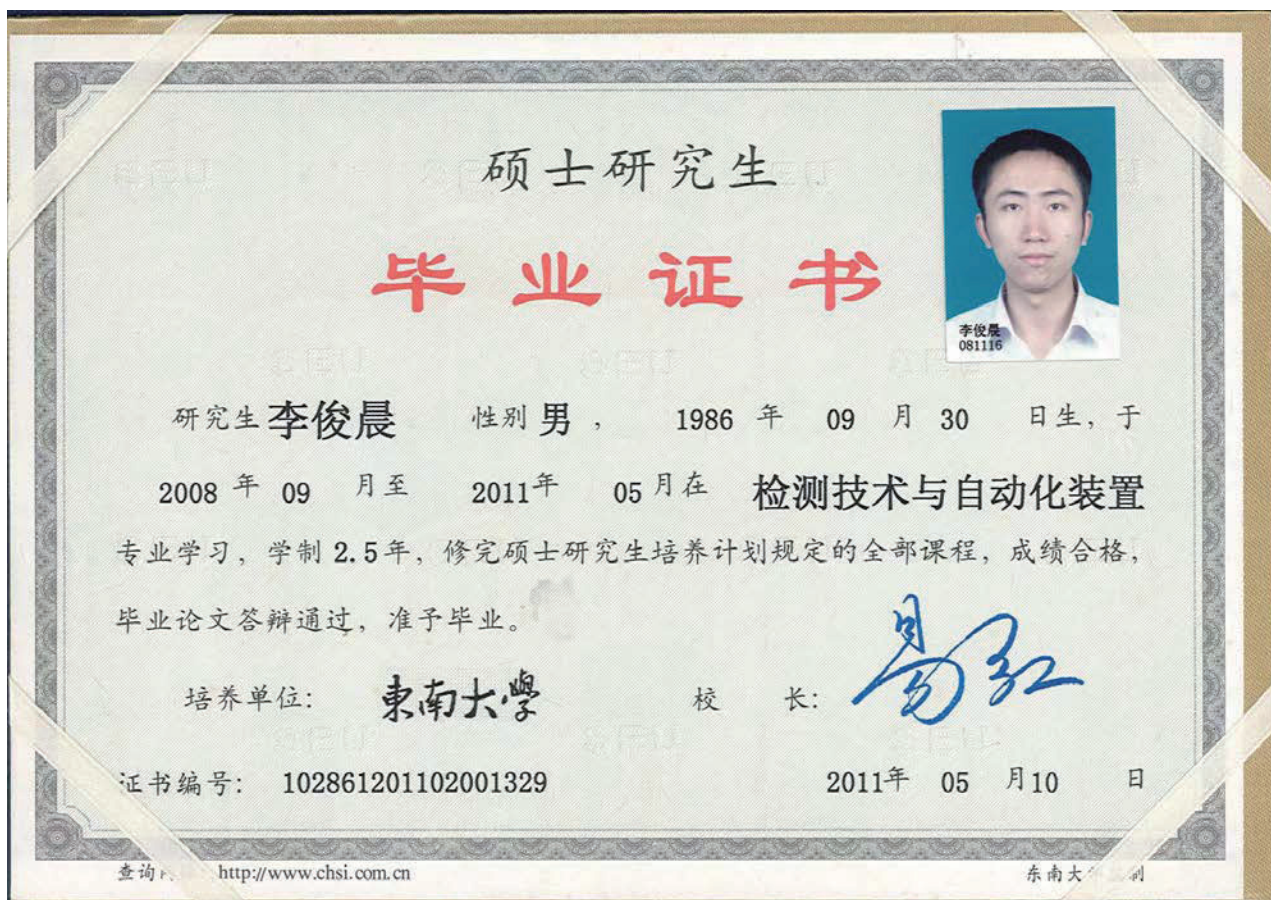 硕士研究生
毕业证书
李俊晨
081116
研究生 李俊晨 性别 男 ， 1986 年 09 月 30 日生，于
2008 年 09 月至 2011年 05 月在 检测技术与自动化装置
专业学习，学制 2.5 年，修完硕士研究生培养计划规定的全部课程，成绩合格，
毕业论文答辩通过，准予毕业。
培养单位： 東南大學 校 长： 易红
证书编号： 102861201102001329 2011年 05 月10 日
查询 http://www.chsi.com.cn 东南大 制